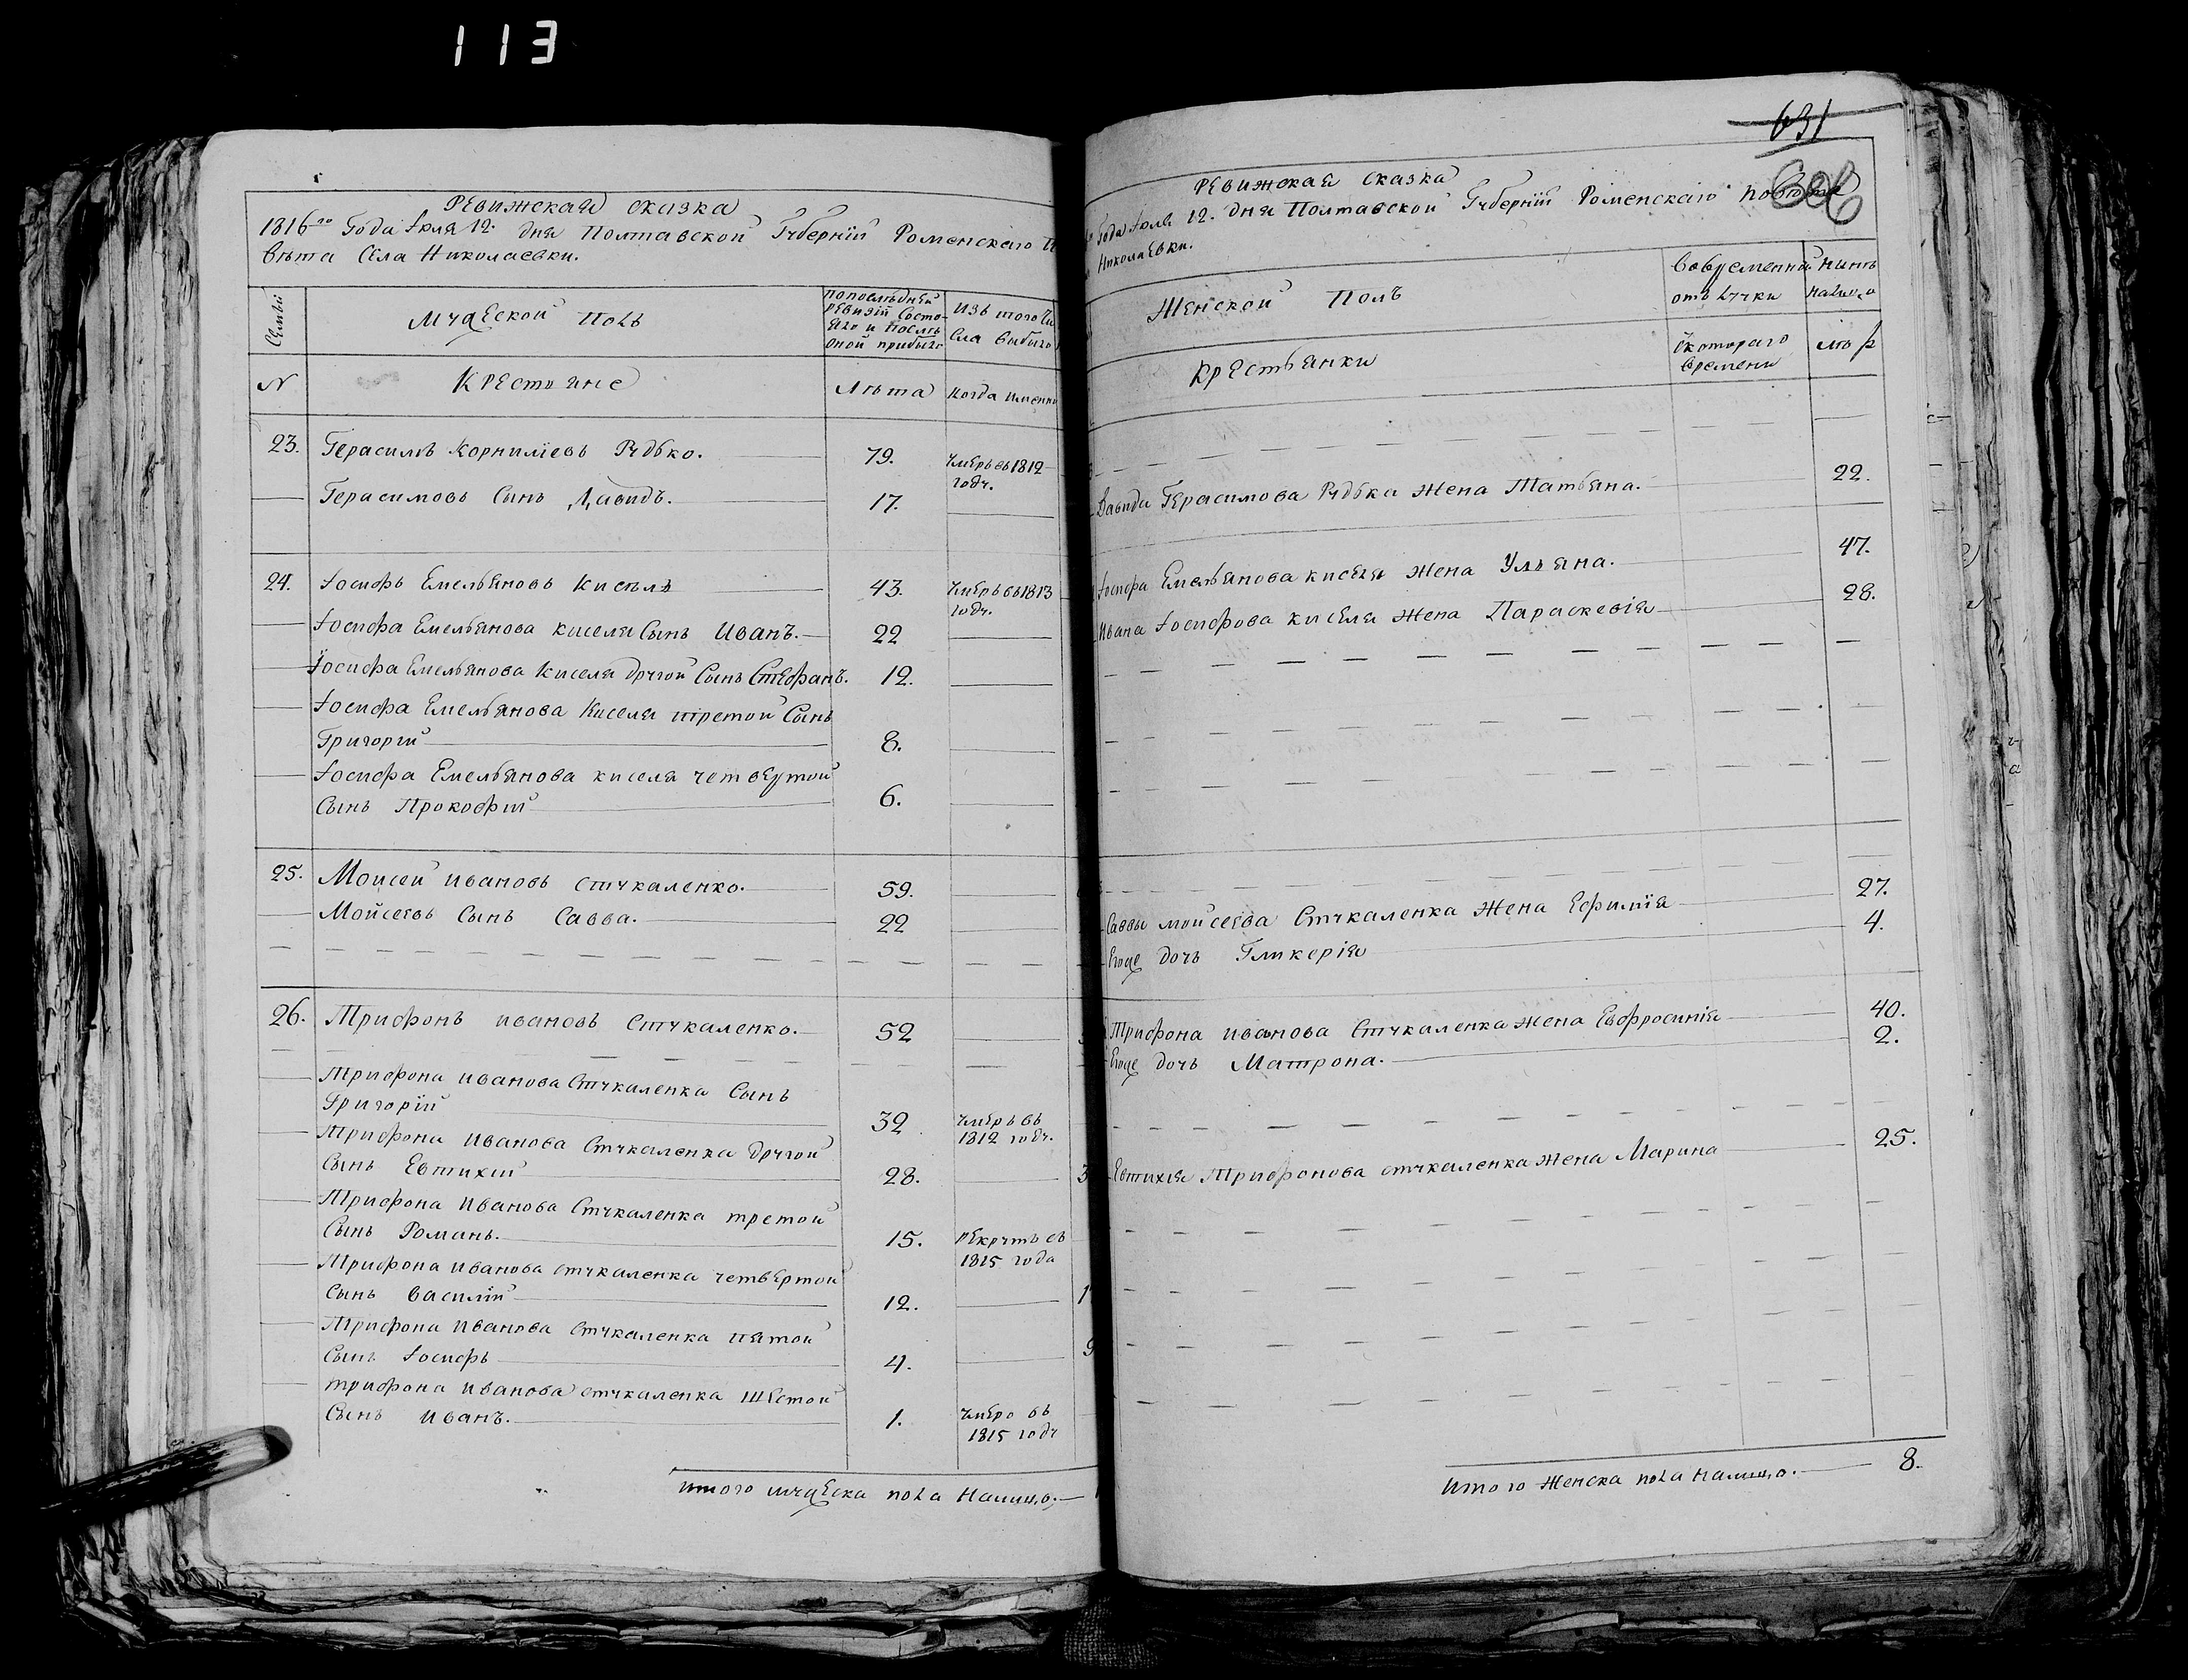 113
Ревижская сказка
1816го Года Июля 12. дня Полтавской Губернїи Роменскаго По
вѣта Села Николаевки.
Семьи
Мужеской Полъ
Попослѣдней
ревизїи Состо-
яло и послѣ
оной прибыло
Изъ того чи
сла выбыло
N
Крестьяне
Лѣта
Когда именно
23. Герасимъ Корнилїевъ Рудько. 79. Умеръ въ 1812
году.
Герасимовъ Сынъ Давидъ. 17.
24. Іосифъ Емельяновъ Киселъ 43. Умеръ въ 1813
году.
Іосифа Емельянова Киселя Сынъ Иванъ. 22
Іосифа Емельянова Киселя другой Сынъ Стефанъ. 12.
Іосифа Емельянова Киселя третой Сынъ
Григорий 8.
Іосифа Емельянова Киселя четвертой
Сынъ Прокофий 6.
25. Моисей Ивановъ Стукаленко. 59.
Мойсеевъ Сынъ Савва. 22
26. Трифонъ Ивановъ Стукаленко. 52
Трифона Иванова Стукаленка Сынъ
Григорїй 32 Умеръ въ
1812 году.
Трифона Иванова Стукаленка другой
Сынъ Евтихий 28.
Трифона Иванова Стукаленка третой
Сынъ Романъ. 15. рекрутъ съ
1815 года
Трифона Иванова Стукаленка четвертой
Сынъ Василїй 12.
Трифона Иванова Стукаленка пятой
Сынъ Іосифъ 4.
Трифона Иванова Стукаленка шестой
Сынъ Иванъ. 1. Умеръ въ
1815 году
Итого мужеска пола налицо.
631
606
Ревижская сказка
Года Июля 12. дня Полтавской Губернїи Роменскаго Повѣта
Николаевки.
Женской Полъ
Вовременной
отълучки
Нынѣ
налицо
Крестьянки
Скотораго
времени
Лѣта
Давида Герасимова Рудька жена Татьяна. 22.
Іосифа Емельянова Киселя жена Ульяна. 47.
Ивана Іосифова Киселя жена Параскевїя 28.
Саввы Мойсеева Стукаленка жена Ефимїя 27.
Егоже дочь Гликерїя 4.
Трифона Иванова Стукаленка жена Евфросинїя 40.
Егоже дочь Матрона. 2.
Евтихїя Трифонова Стукаленка жена Марина 25.
Итого женска пола налицо. 8.